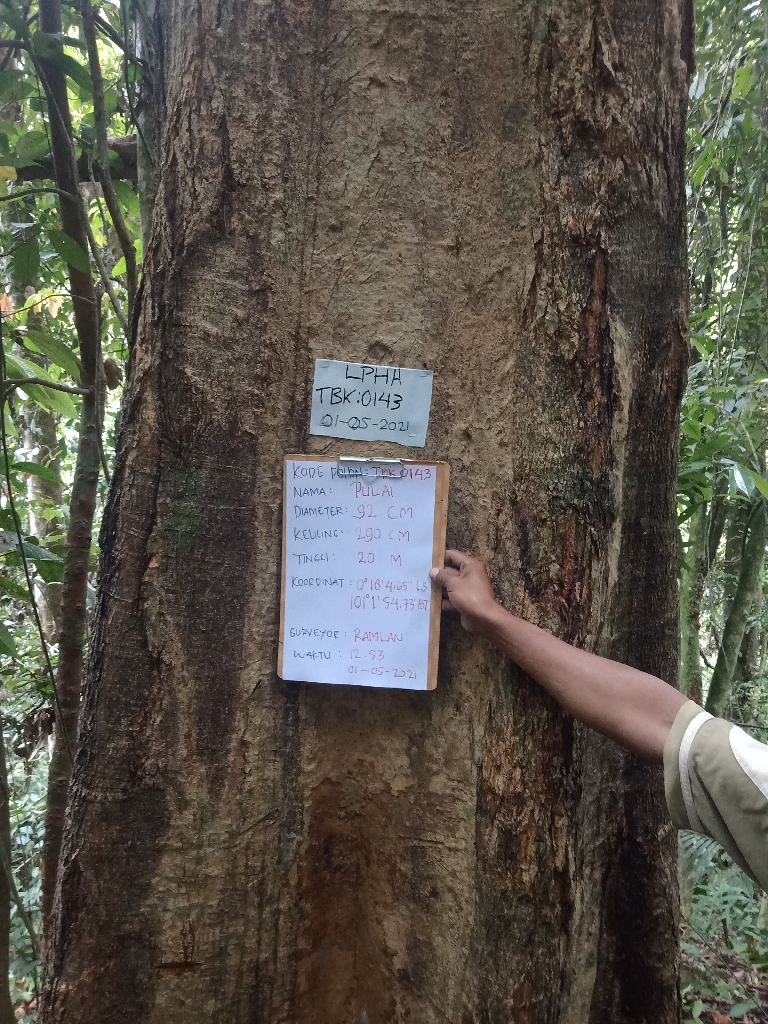 LPHA
TBK:0143
01-05-2021
KODE POHON: TBK 0143
NAMA: PULAI
DIAMETER: 92 CM
KELLING: 290 CM
TINGGI: 20 M
KOORDINAT: 0°18'4,65" LS
101°1'54,73"BT
SURVEYOR: RAMLAN
WAKTU: 12.53
01-05-2021